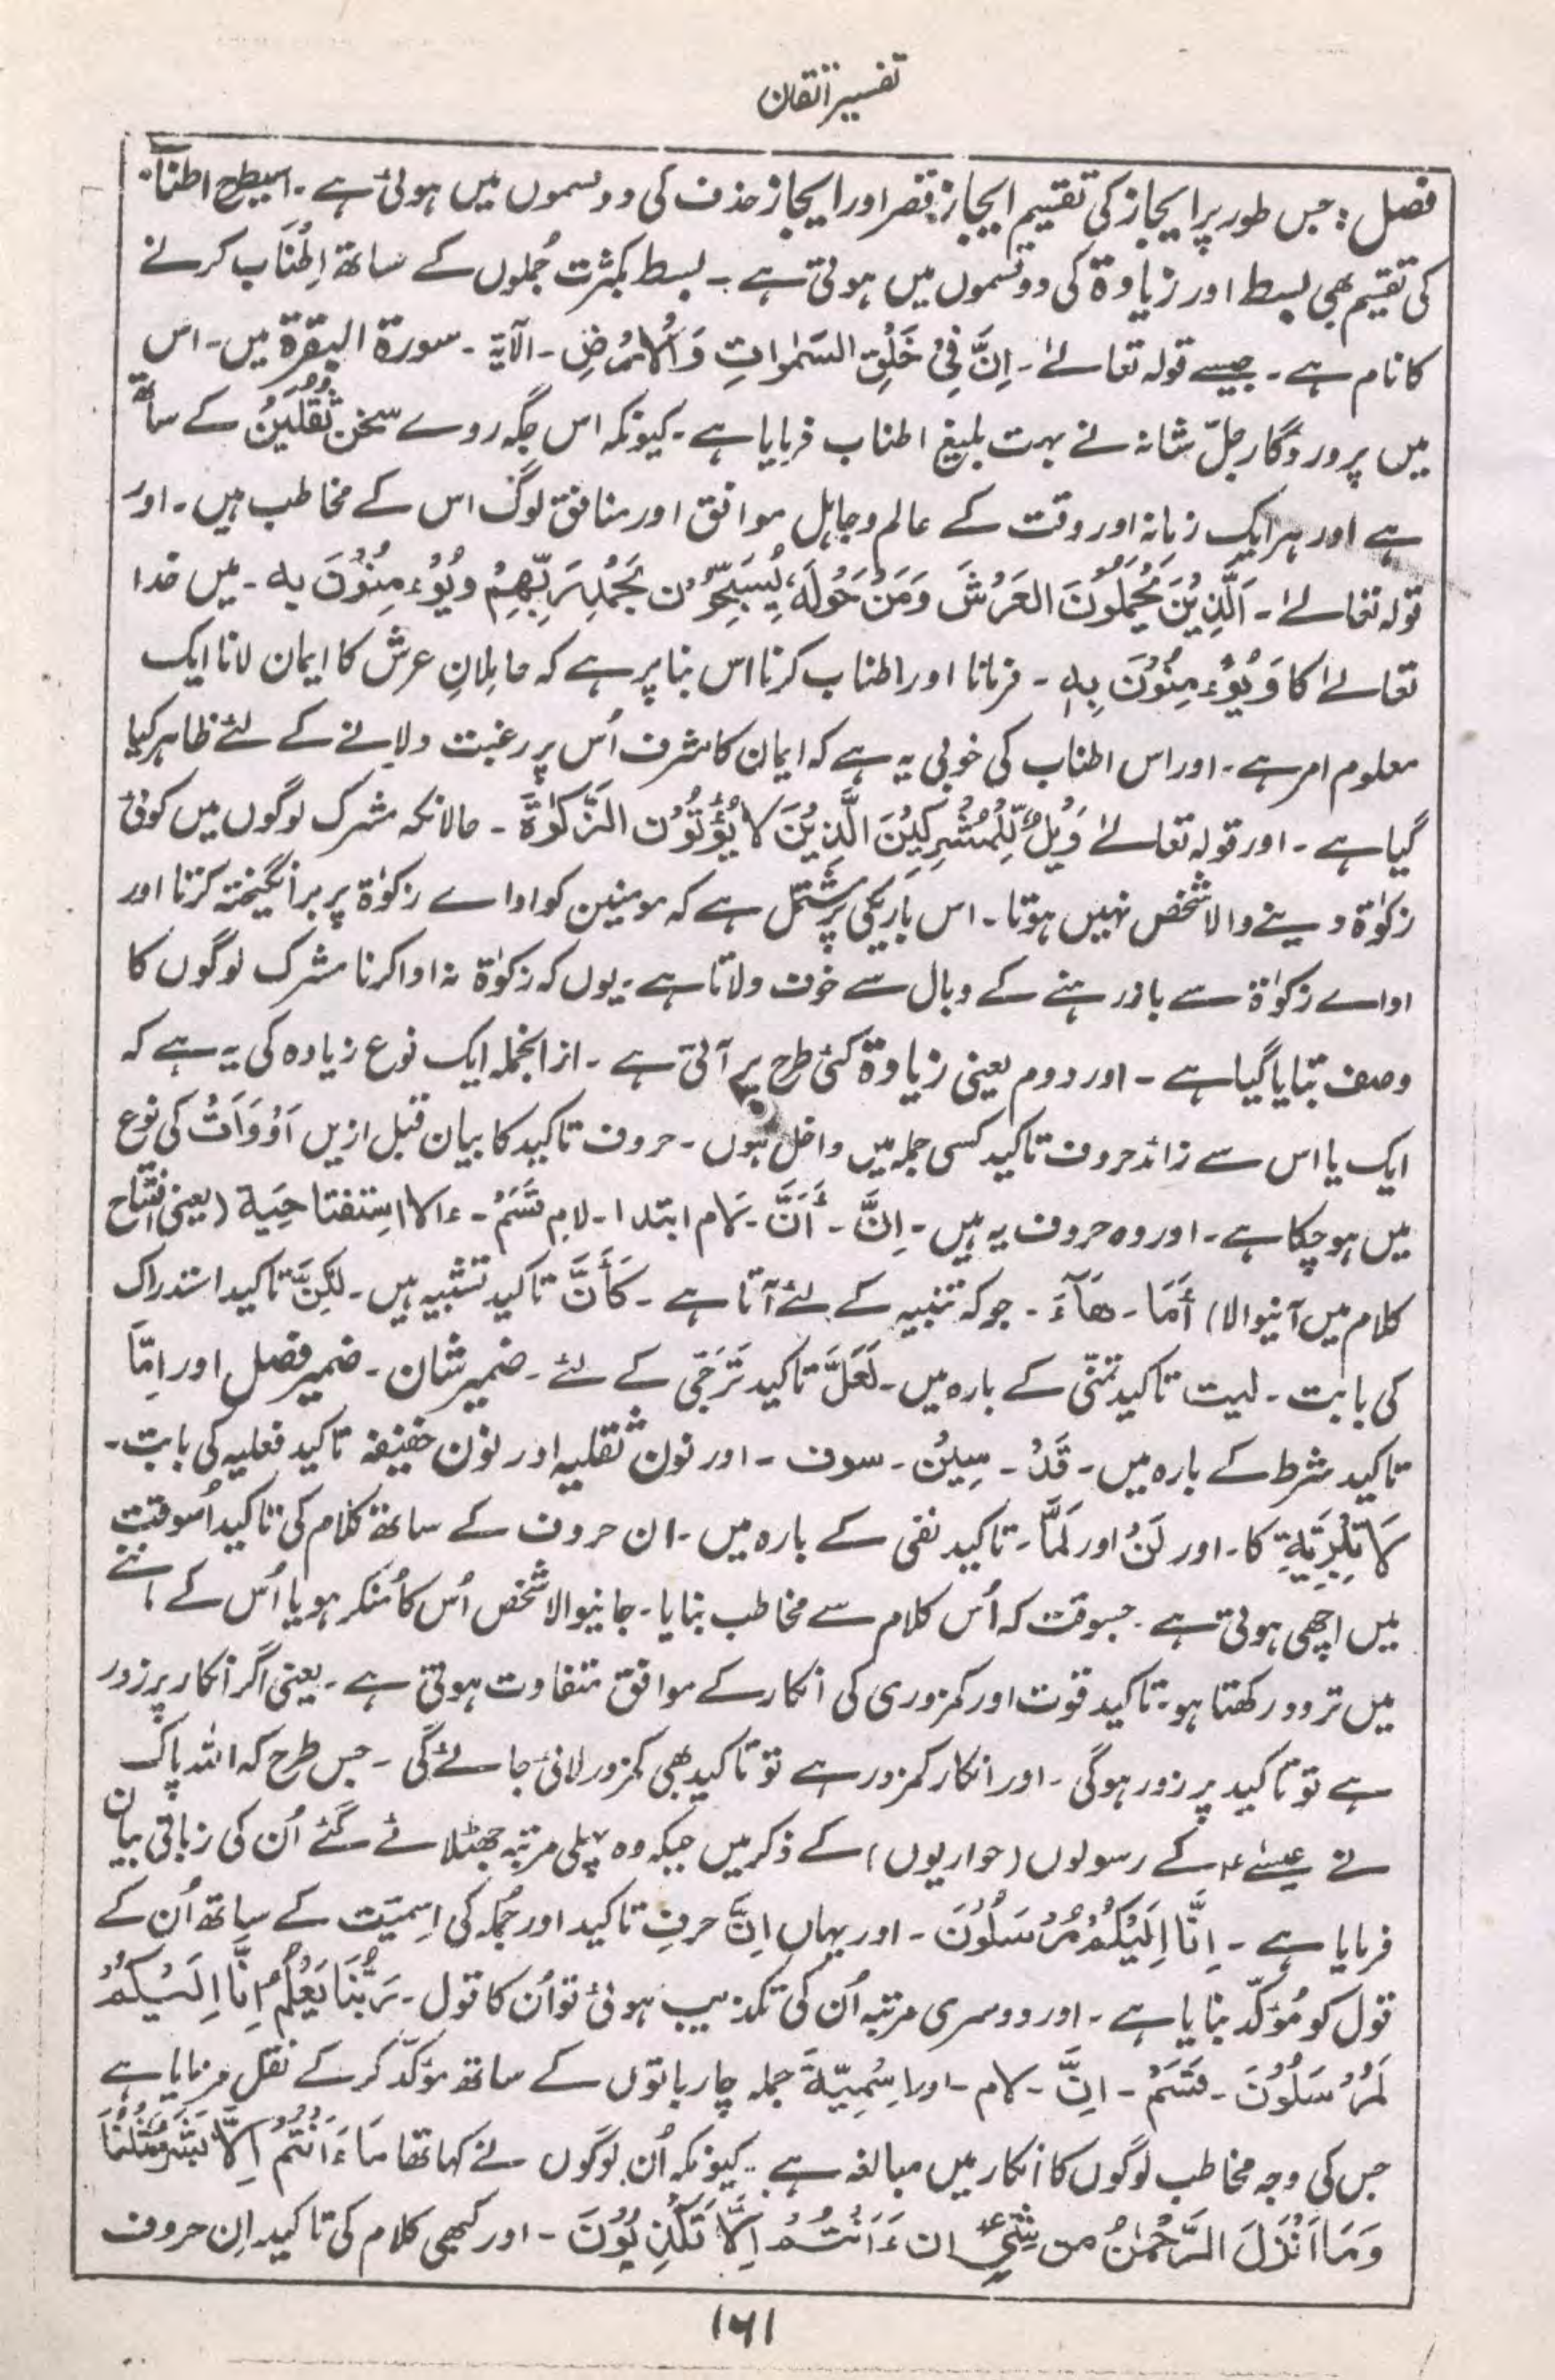 تفسیر اتقان
فصل: جس طور پر ایجاز کی تقسیم ایجاز قصر اور ایجاز حذف کی دو قسموں میں ہوئی ہے۔ اسیطرح اطناب
کی تقسیم بھی بسط اور زیادۃ کی دو قسموں میں ہوتی ہے۔ بسط بکثرت جُملوں کے ساتھ اِطْنَاب کرنے
کا نام ہے۔ جیسے قولہ تعالےٰ۔ اِنَّ فِیْ خَلْقِ السَمٰوَاتِ وَالْاَرْضِ۔ الآیۃ۔ سورۃ البقرۃ میں۔ اس
میں پروردگار جلّ شانہ نے بہت بلیغ اطناب فرمایا ہے۔ کیونکہ اس جگہ روے سخن ثَقَلَیْنُ کے ساتھ
ہے اور ہر ایک زمانہ اور وقت کے عالم و جاہل موافق اور منافق لوگ اس کے مخاطب ہیں۔ اور
قولہ تعالےٰ۔ اَلَّذِیْنَ یَحْمِلُوْنَ العَرْشَ وَمَنْ حَوْلَهٗ یُسَبِّحُوْن بَحَمْدِ رَبِّهِمْ ویُوْءمِنُوْنَ بہ۔ میں خدا
تعالےٰ کا وَیُوْءمِنُوْنَ بِهٖ۔ فرمانا اور اطناب کرنا اس بنا پر ہے کہ حاملانِ عرش کا ایمان لانا ایک
معلوم امر ہے۔ اور اس اطناب کی خوبی یہ ہے کہ ایمان کا شرف اُس پر رغبت دلانے کے لئے ظاہر کیا
گیا ہے۔ اور قولہ تعالےٰ وَیْلٌ لِّلْمُشْرِکِیْنَ الَّذِیْنَ لَا یُؤْتُوْن الزَّکٰوۃَ۔ حالانکہ مشرک لوگوں میں کوئی
زکوٰۃ دینے والا شخص نہیں ہوتا۔ اس باریکی پر مشتمل ہے کہ مومنین کو اداے زکوٰۃ پر برانگیختہ کرتا اور
اداے زکوٰۃ سے باز رہنے کے وبال سے خوف دلاتا ہے۔ یوں کہ زکوٰۃ نہ ادا کرنا مشرک لوگوں کا
وصف بتایا گیا ہے۔ اور دوم یعنی زیادۃ کئی طرح پر آتی ہے۔ از انجملہ ایک نوع زیادہ کی یہ ہے کہ
ایک یا اس سے زائد حروف تاکید کسی جملہ میں داخل ہوں۔ حروف تاکید کا بیان قبل ازیں اَدْوَاتُ کی نوع
میں ہو چکا ہے۔ اور وہ حروف یہ ہیں۔ اِنَّ۔ أَنَّ۔ لام ابتدا۔ لام قَسَمْ۔ ءالا اسِتفتا حِیَة (یعنی افتتاح
کلام میں آنیوالا) أَمَا۔ هَآءَ۔ جو کہ تنبیہ کے لئے آتا ہے۔ کَأَنَّ تاکید تشبیہ میں۔ لٰکِنَّ تاکید استدراک
کی بابت۔ لیت تاکید تمنّی کے بارہ میں۔ لَعَلَّ تاکید تَرَجّی کے لئے۔ ضمیر شان۔ ضمیر فصل اور اِمَّا
تاکید شرط کے بارہ میں۔ قَدْ۔ سِیْنُ۔ سوف۔ اور نون ثقلیہ اور نون خفیفہ تاکید فعلیہ کی بابت۔
لَا تبْرِیَةِ کا۔ اور لَنْ اور لَمَّا۔ تاکید نفی کے بارہ میں۔ ان حروف کے ساتھ کلام کی تاکید اُسوقت
میں اچھی ہوتی ہے۔ جسوقت کہ اُس کلام سے مخاطب بنایا۔ جانیوالا شخص اُس کا مُنکر ہو یا اُس کے ماننے
میں تردد رکھتا ہو۔ تاکید قوت اور کمزوری کی انکار کے موافق متفاوت ہوتی ہے۔ یعنی اگر انکار پر زور
ہے تو تاکید پر زور ہوگی۔ اور انکار کمزور ہے تو تاکید بھی کمزور لائی جائے گی۔ جس طرح کہ اللہ پاک
نے عیسےٰ ء کے رسولوں (حواریوں) کے ذکر میں جبکہ وہ پہلی مرتبہ جھٹلائے گئے اُن کی زبانی بیان
فرمایا ہے۔ اِنَّا اِلَیْکُمْ مُرْسَلُوْنَ۔ اور یہاں اِنَّ حرفِ تاکید اور جُملہ کی اِسمِیَت کے ساتھ اُن کے
قول کو مُؤکّد بنایا ہے۔ اور دوسری مرتبہ اُن کی تکذیب ہوئی تو اُن کا قول۔ رَبُّنَا یَعْلَمُ اِنَّا اِلَیْکُمْ
لَمُرْسَلُوْنَ۔ قَسَمْ۔ انَّ۔ لام۔ اور اسْمِیّةَ جملہ چار باتوں کے ساتھ مؤکّد کر کے نقل فرمایا ہے
جس کی وجہ مخاطب لوگوں کا انکار میں مبالغہ ہے۔ کیونکہ اُن لوگوں نے کہا تھا مَا ءَانْتُمْ اِلَّا بَشَرٌ مِّثْلُنَا
وَمَا اَنْزَلَ الرَّحْمٰنُ من شِیْءٍ ان ءَانْتُمْ اِلَّا تَکْذِبُوْنَ۔ اور کبھی کلام کی تاکید اِن حروف
۱۶۱